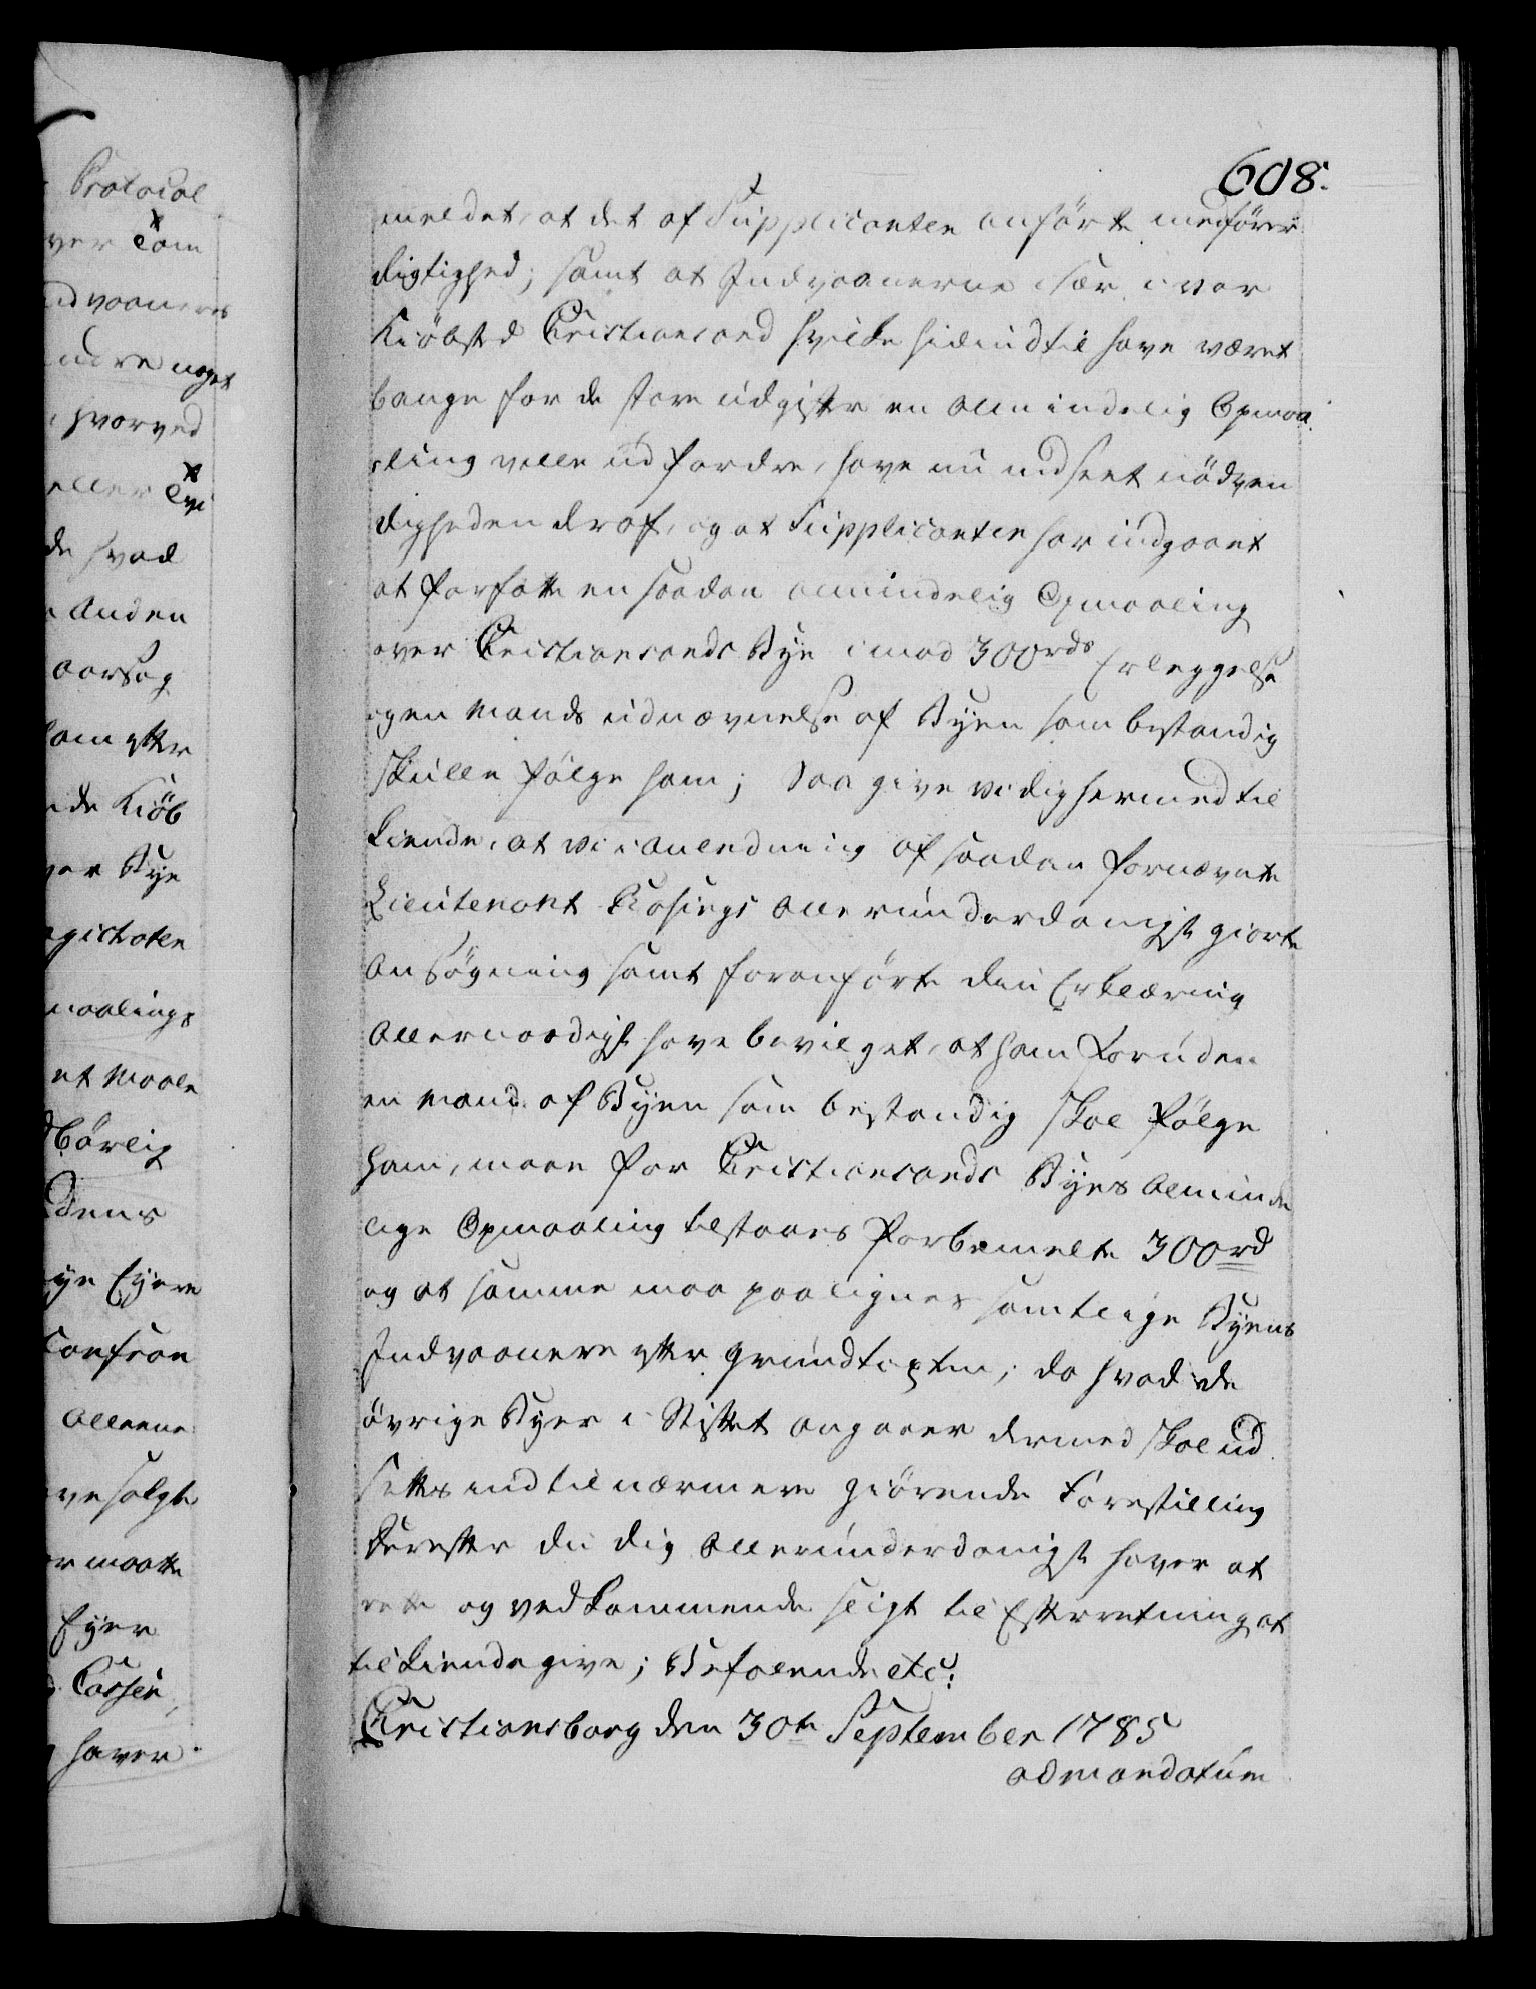 Protocol
ver Com
ndvaanernes
ndre noget
hvorved
eller Tvi
de hvad
Anden
aarsag
som efter
nde Kiöb
ver Bye
agistraten
maalings
et Maale
dbörlig
dens
ye Eyere
Consson
Alleene
ve solgte
er maatte
Eyer
Cassen,
haver
608.
meldet, at det af Supplicanten anförte medförer
Rigtighed; samt at Indvaanerne især i vor
Kiöbsted Christiansand hvilke hidindtil have været
bange for de store udgifter en Almindelig Opmaa-
ling ville udfordre, have nu indseet nödven
digheden deraf, og at Supplicanten har indgaaet
at forfatte en saadan almindelig Opmaaling
over Christiansands Bye imod 300rds Erleggelse
og en Mands udnævnelse af Byen som bestandig
skulle fölge ham; Saa give vi dig hermed til
kiende, at vi i Anledning af saadan fornævnte
Lieutenant Allerunderdanigst giorte
Ansögning samt foranförte din Erklæring
Allernaadigst have bevilget, at ham foruden
en Mand af Byen som bestandig skal fölge
ham, maae for Christiansands Byes Alminde
lige Opmaaling tilstaaes forbemelte 300rd
og at samme maa paalignes samtlige Byens
Indvaanere efter Grundtaxten; da hvad de
övrige Byer i Stiftet angaaer dermed skal ud
settes indtil nærmere giörende Forestilling
Derefter du dig Allerunderdanigst haver at
rette og vedkommende sligt til Efterretning at
tilkiendegive; Befalende etc:
Christiansborg den 30te September 1785
ad mandatum